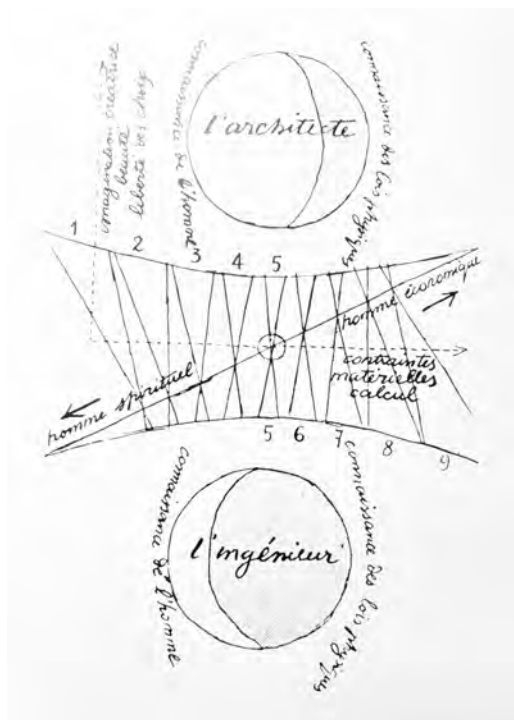 imagination créatrice
beauté
liberté des choix
connaissance de l'homme
l'architecte
connaissance des lois physiques
1 2 3 4 5
homme économique
homme spirituel
contraintes
matérielles
calcul
5 6 7 8 9
connaissance de l'homme
l'ingénieur
connaissance des lois physiques